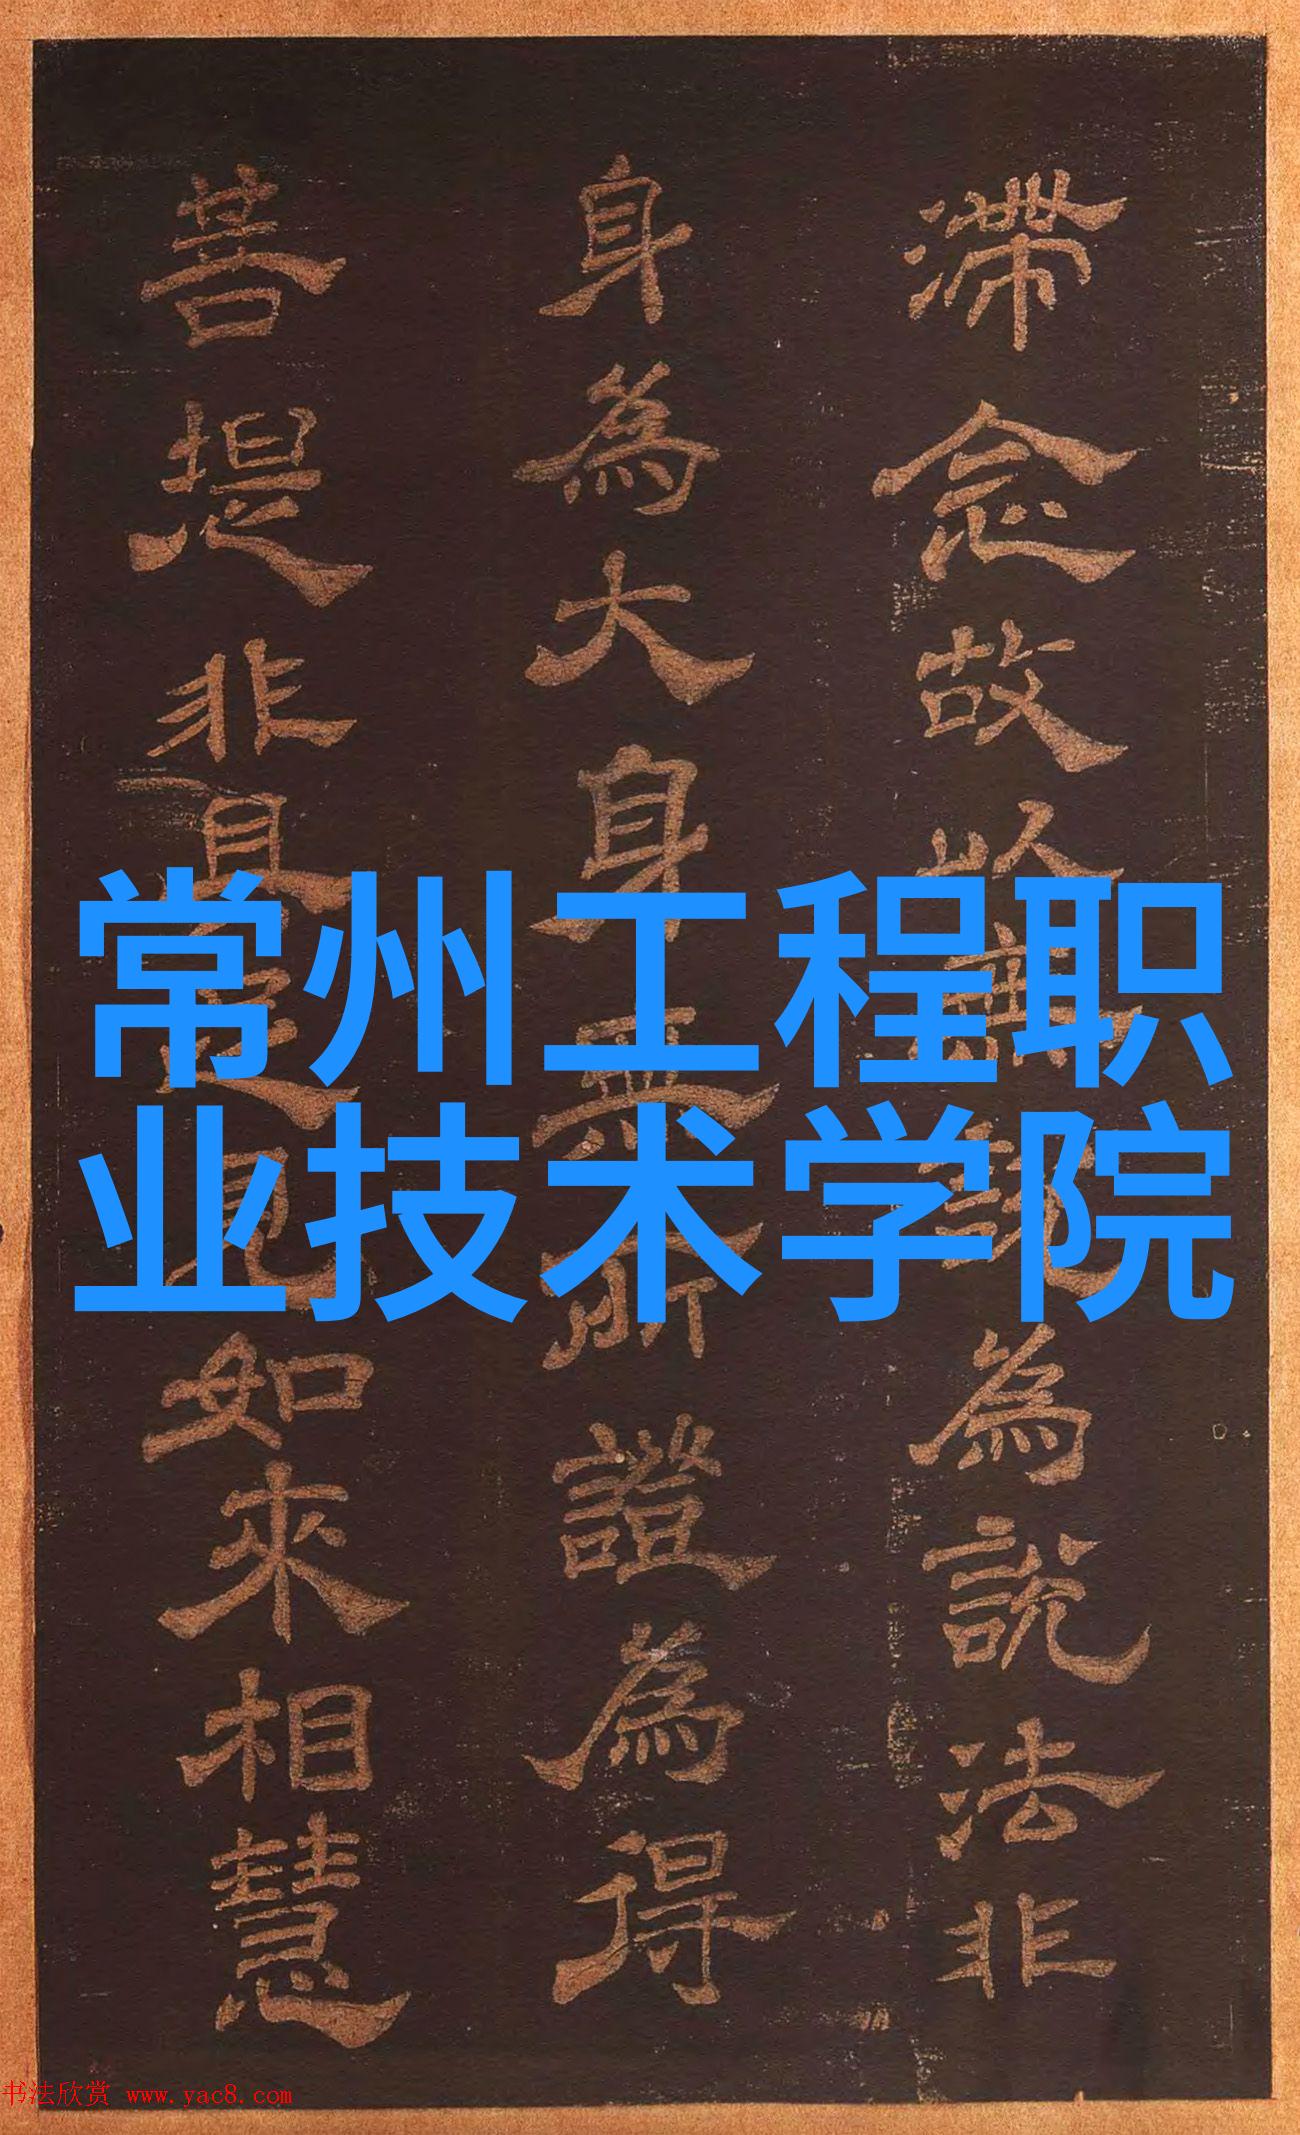 滯念故以無說為說法非
身為大身無所證為得
菩提非具足見如來相慧
常州工程职
业技术学院
书法欣赏 www.yac8.com